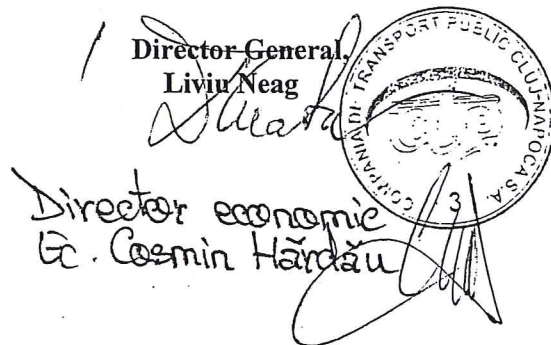 Director General,
Liviu Neag
COMPANIA DE TRANSPORT PUBLIC CLUJ-NAPOCA S.A.
3
Director economic
Ec. Cosmin Hărdău